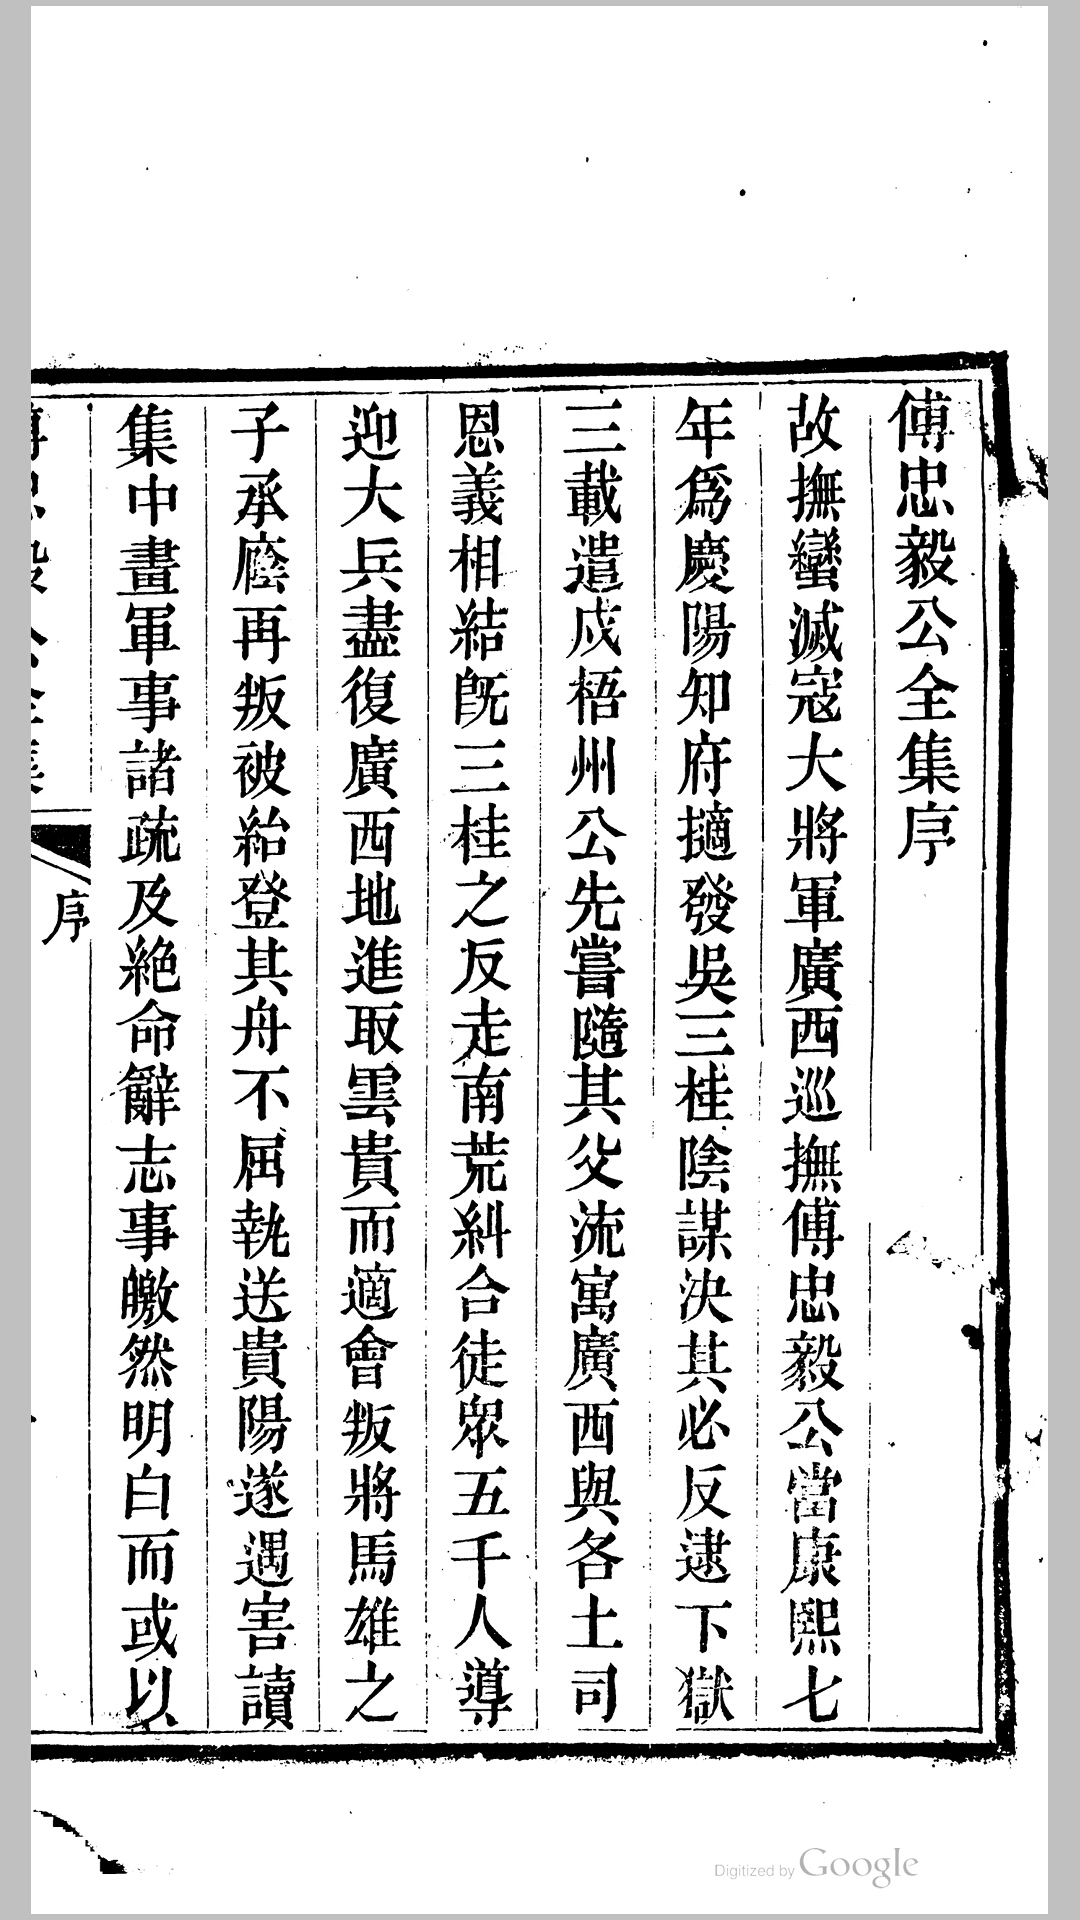 傅忠毅公全集序
故撫蠻滅寇大將軍廣西巡撫傅忠毅公當康熙七
年爲慶陽知府擿發吳三桂陰謀決其必反逮下獄
三載遣戍梧州公先嘗隨其父流寓廣西與各土司
恩義相結旣三桂之反走南荒糾合徒眾五千人導
迎大兵盡復廣西地進取雲貴而適會叛將馬雄之
子承廕再叛被紿登其舟不屈執送貴陽遂遇害讀
集中畫軍事諸疏及絶命辭志事皦然明白而或以
序
Digitized by Google